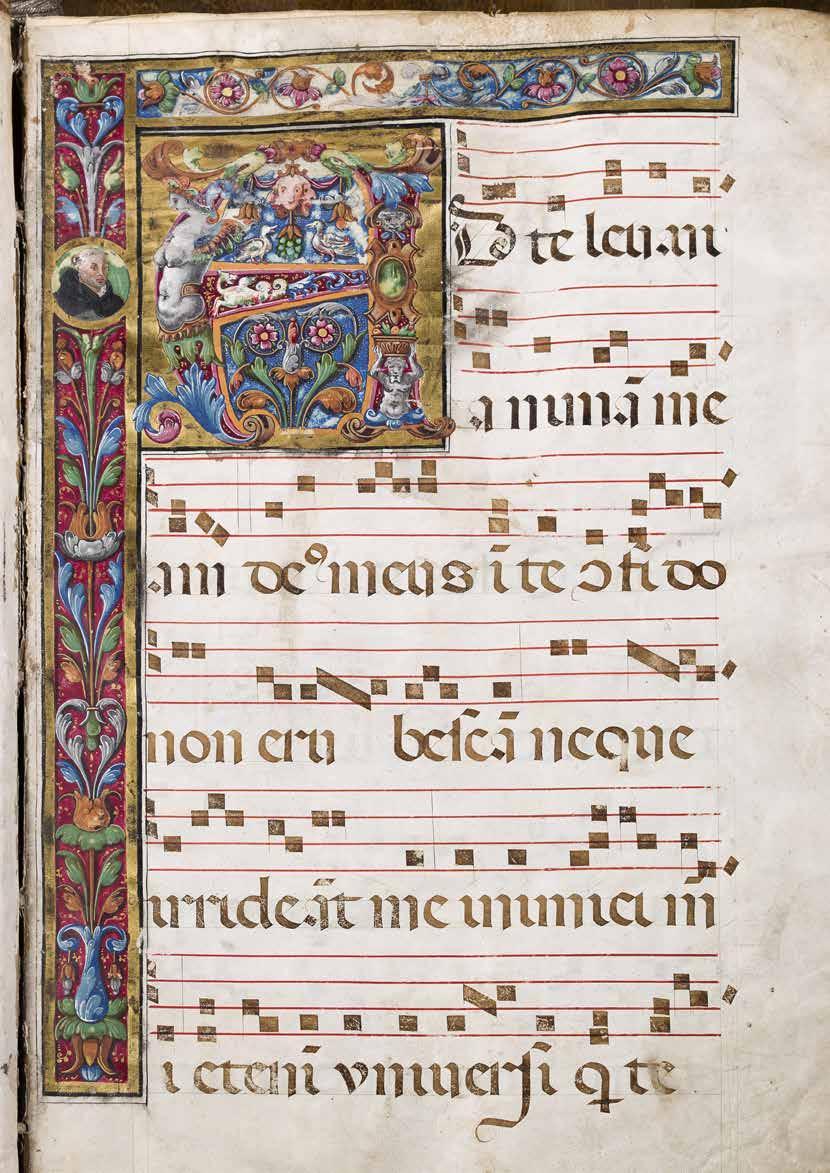 AD te leuaui
animã me
am deꝰ meus ĩ te ↄfido
non eru bescã neque
irrideãt me inimici m̃
i eteni̅ vniuersi q̃ te